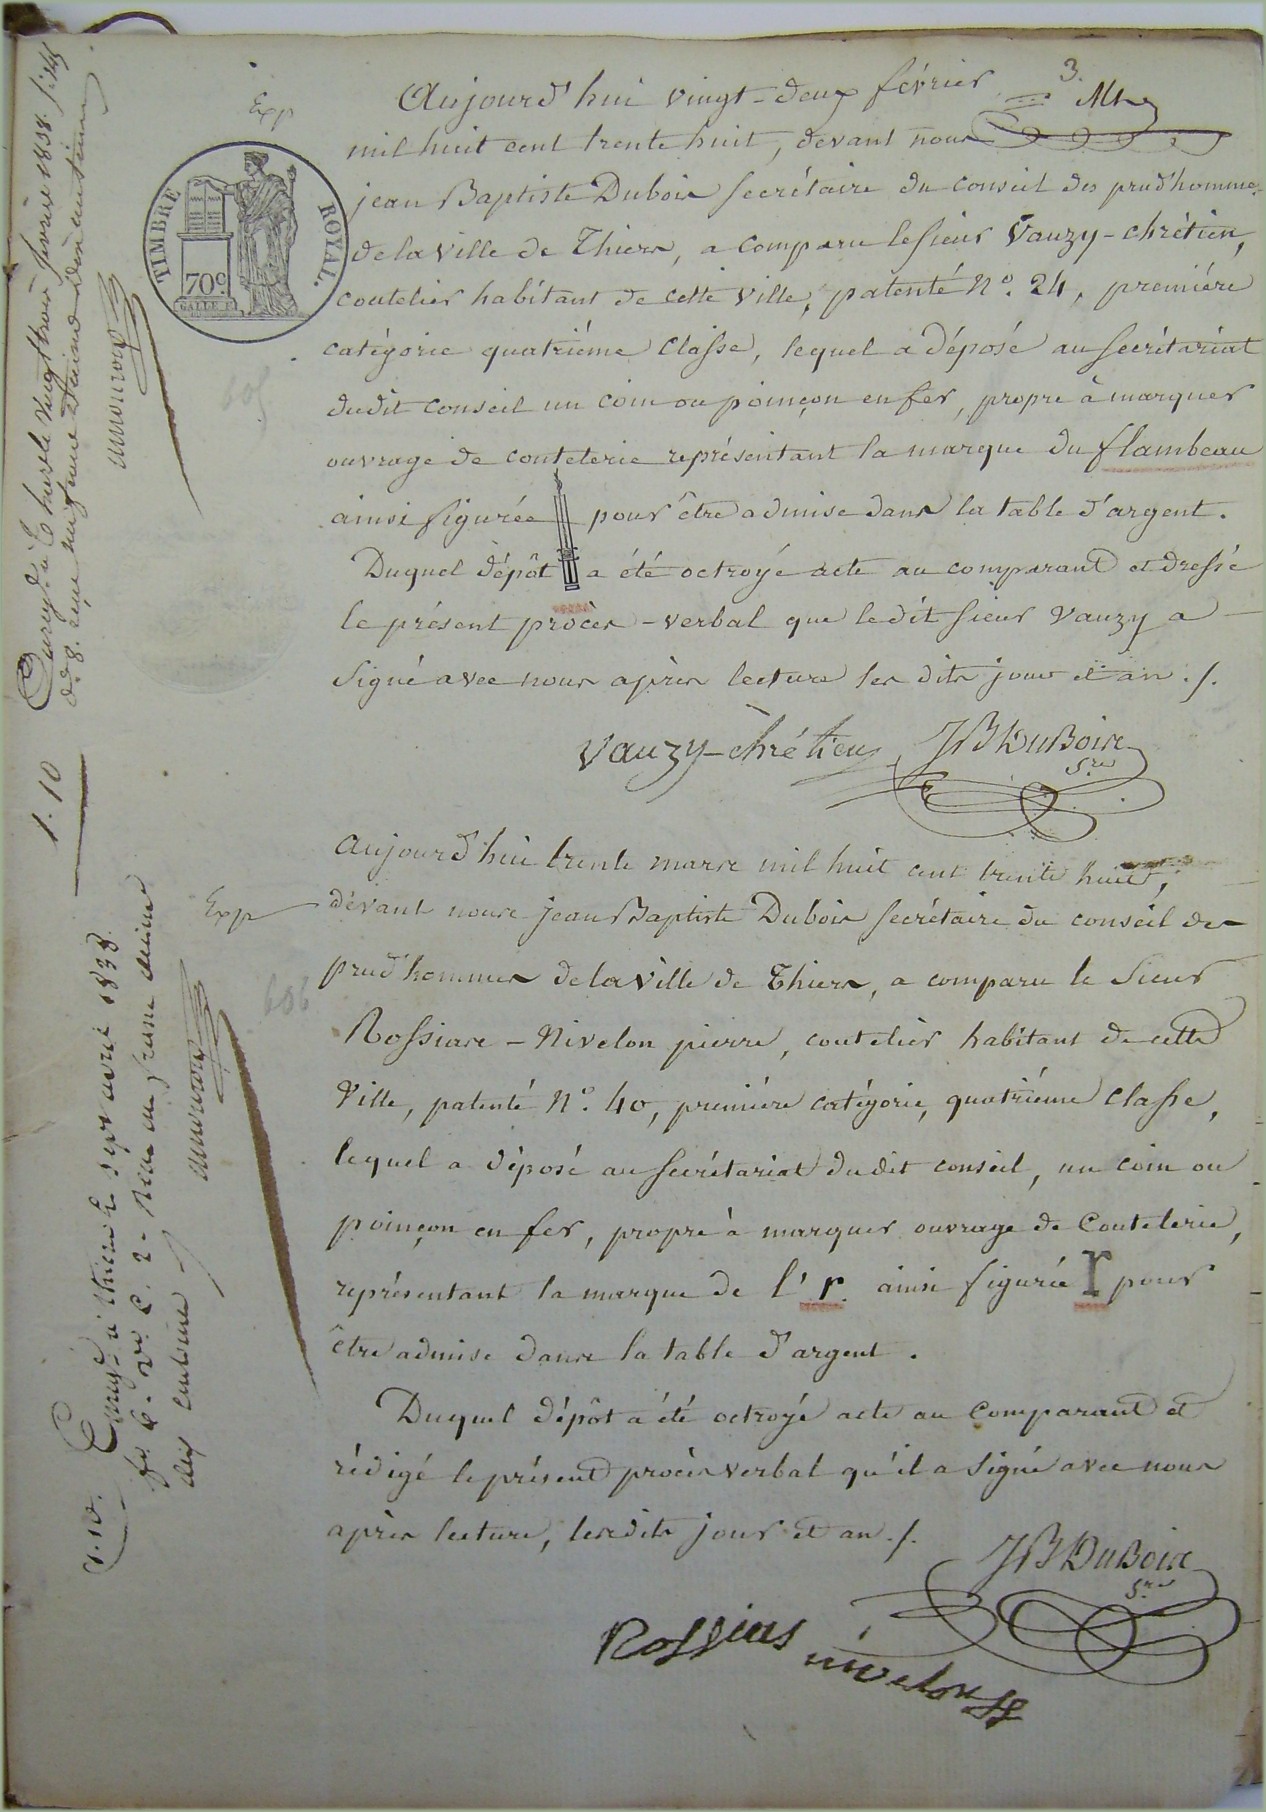 3.
Exp
Aujourd'hui vingt-deux février
mil huit cent trente huit, devant nous
jean Baptiste Dubois secrétaire du conseil des prud'hommes
de la ville de Thiers, a comparu le sieur Vauzy-chrétien,
coutelier habitant de cette ville, patenté N°. 24, première
catégorie quatrième classe, lequel a déposé au secrétariat
dudit conseil un coin ou poinçon en fer, propre à marquer
ouvrage de coutelerie représentant la marque du flambeau
ainsi figurée pour être admise dans la table d'argent.
Duquel dépôt a été octroyé acte au comparant et dressé
le présent procès-verbal que ledit sieur Vauzy a
signé avec nous après lecture les dits jour et an ./.
Vauzy-chrétien JB DuBois
S.re
TIMBRE ROYAL.
70c
605
1.10
Exp
Aujourd'hui trente mars mil huit cent trente huit,
devant nous jean Baptiste Dubois secrétaire du conseil des
prud'hommes de la ville de Thiers, a comparu le sieur
Rossias-Nivelon pierre, coutelier habitant de cette
ville, patenté N°. 40, première catégorie, quatrième classe,
lequel a déposé au secrétariat dudit conseil, un coin ou
poinçon en fer, propre à marquer ouvrage de coutelerie,
représentant la marque de l'r. ainsi figurée r pour
être admise dans la table d'argent.
Duquel dépôt a été octroyé acte au comparant et
rédigé le présent procès verbal qu'il a signé avec nous
après lecture, lesdits jour et an ./.
JB DuBois
S.re
Rossias nivelon
606
à thiers le sept avril 1838.
1.10.